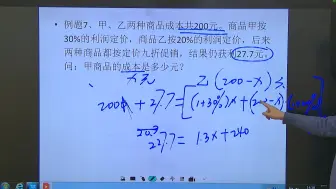 例题7、甲、乙两种商品成本共200元。商品甲按
30%的利润定价，商品乙按20%的利润定价，后来
两种商品都按定价九折促销，结果仍获利27.7元，
问：甲商品的成本是多少元？
x元 乙 (200-x)元
200 + 27.7 = [(1+30%)x + (2
227.7 = 1.3x + 240